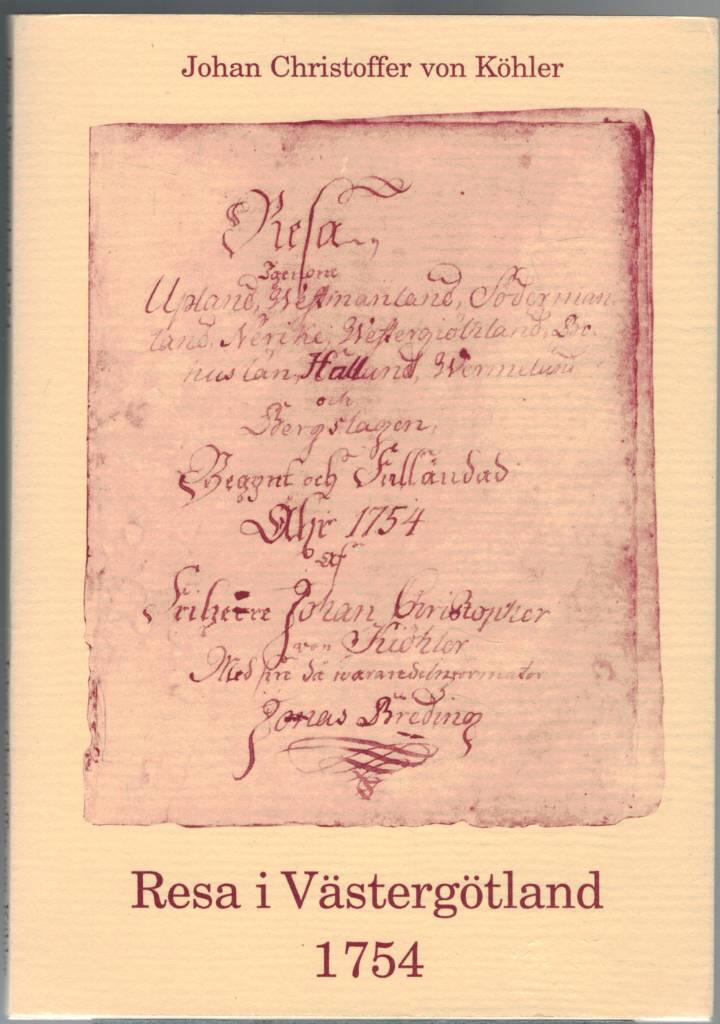 Johan Christoffer von Köhler
Resa,
Igenom
Upland, Westmanland, Söderman-
land, Nerike, Westergiöthland, Bo-
huslän, Halland, Wermeland
och
Bergslagen,
Begynt och Fulländad
Åhr 1754
af
Friherre Johan Christopher
von Kiöhler
Med sin då warande Informator
Jonas Breding
Resa i Västergötland
1754